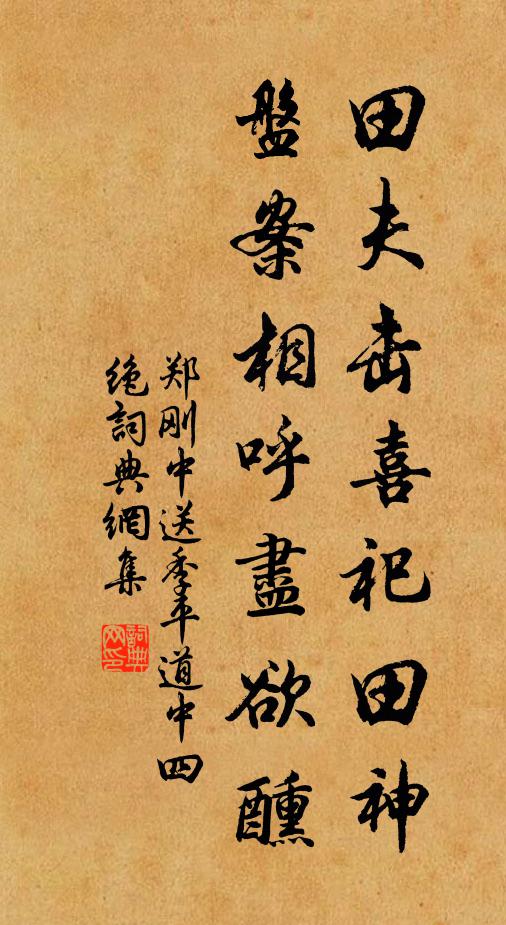 田夫击喜祀田神
盤案相呼盡欲醺
郑刚中送季平道中四
绝詞典網集
詞典网印